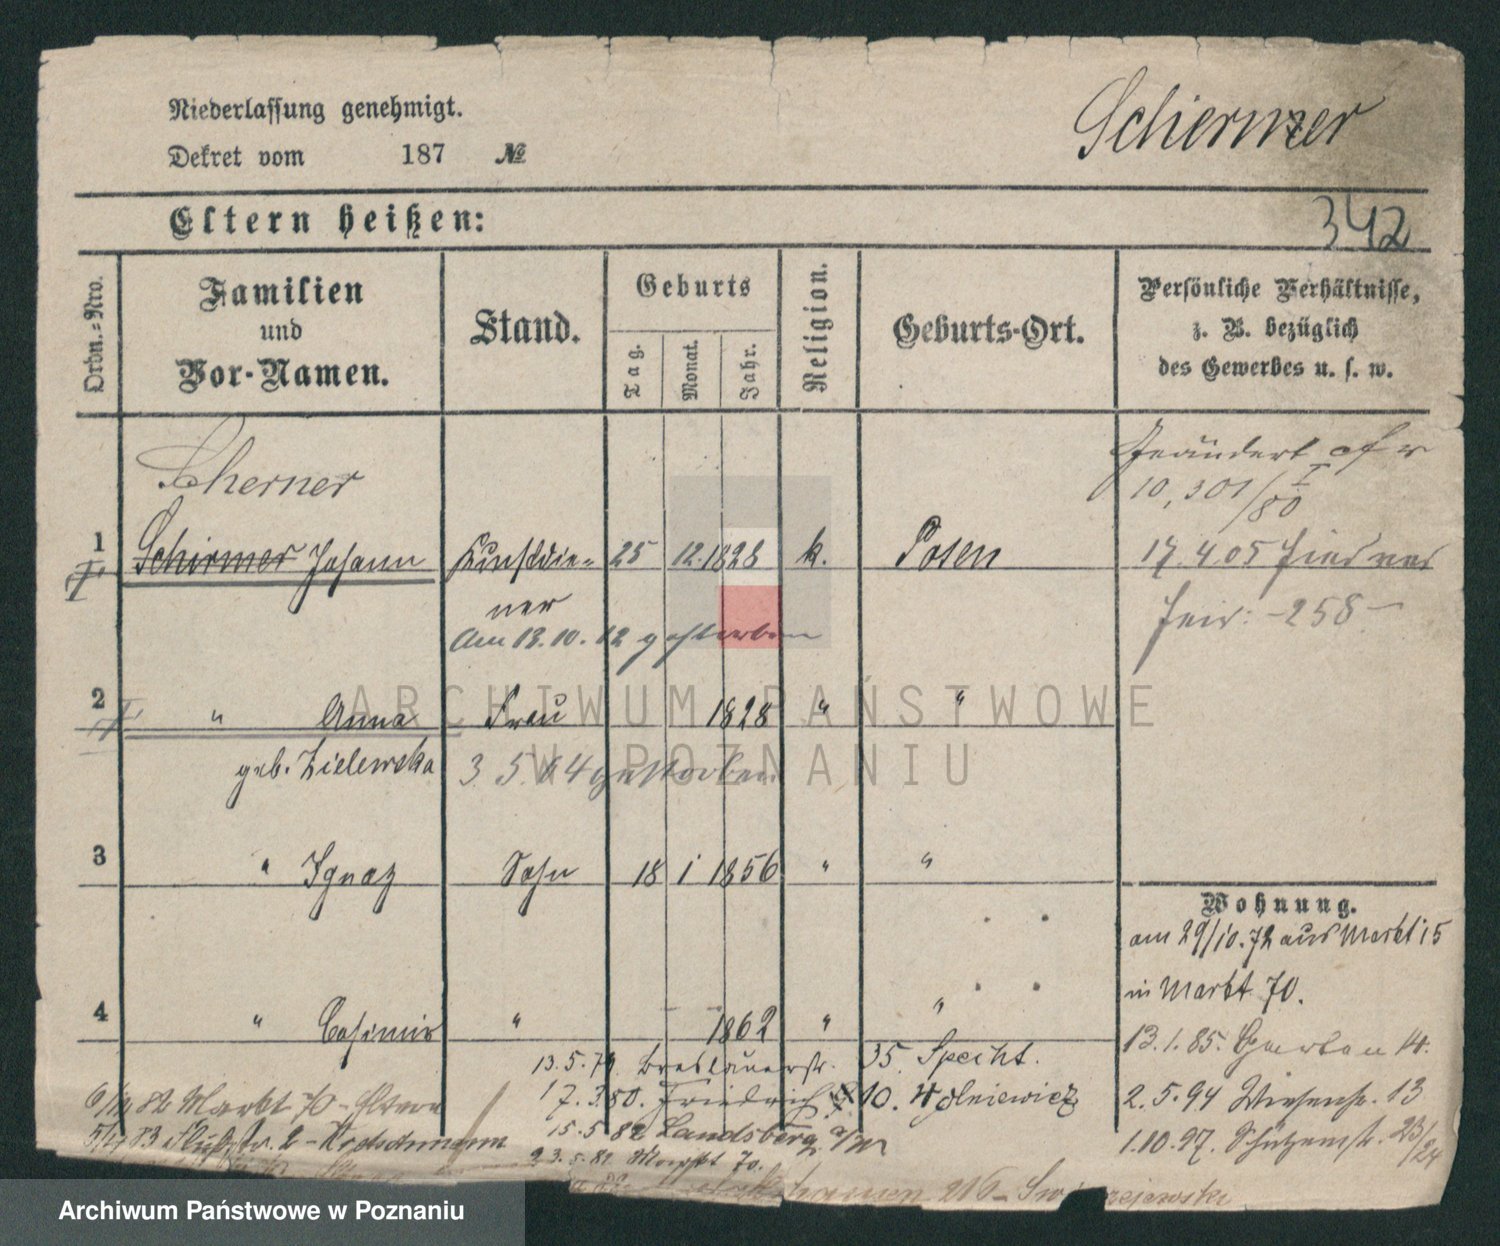 Niederlassung genehmigt.
Schermer
Dekret vom 187 №
Eltern heißen:
342
Ordn.-Nro.
Familien und Vor-Namen.
Stand.
Geburts
Tag.
Monat.
Jahr.
Religion.
Geburts-Ort.
Persönliche Verhältnisse,
z. B. bezüglich
des Gewerbes u. s. w.
Scherner
Geändert
10,301/I 80
1 Schirmer Johann 25 12. 1828 k. Posen
17.4.05
ner
Am 13.10. 12 gestorben
-258-
2 " Anna Frau 1828 " "
geb. Zielewska 3 5. 84 gestorben
3 " Ignaz Sohn 18 1 1856 " "
Wohnung.
am 29/10.72 aus Markt 15
in Markt 70.
4 " Casimir " 1862 " "
13.1.85. Garten 14.
13.5.79. Breslauerstr. 35. Specht.
6/10 82 Markt 70 - Eltern
17.3.80. Friedrich 10. Wolniewicz
2.5.94 Wiesenstr. 13
15.5.82 Landsberg a/W
1.10.97. Schützenstr. 23/24
23.5.82 Markt 70.
216 -
ARCHIWUM PAŃSTWOWE
W POZNANIU
Archiwum Państwowe w Poznaniu